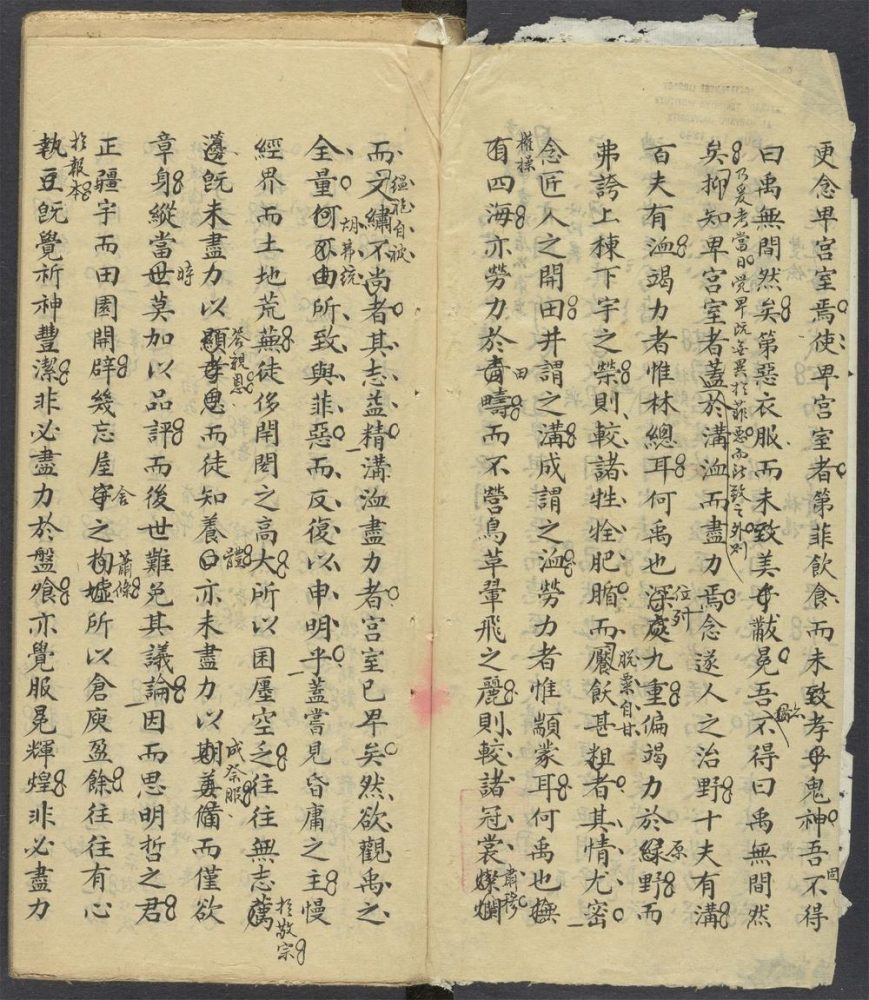 更念卑宮室焉使卑宮室者第菲飲食而未致孝乎鬼神吾不得
固
曰禹無間然矣第惡衣服而未致美乎黻冕吾不得曰禹無間然
乃爰考當日覺卑既無異於菲惡而所致之外則
矣抑知卑宮室者蓋於溝洫而盡力焉念遂人之治野十夫有溝
百夫有洫竭力者惟林總耳何禹也深處九重偏竭力於綠野而
位列
原
弗誇上棟下宇之榮則較諸牲牷肥腯而饜飫甚粗者其情尤密
脫粟自甘
念匠人之開田井謂之溝成謂之洫勞力者惟顓蒙耳何禹也撫
權操
有四海亦勞力於畬疇而不營鳥革翬飛之麗則較諸冠裳燦爛
田
肅穆
而文繡不尚者其志益精溝洫盡力者宮室已卑矣然欲觀禹之
縕袍自被
全量何不由所致與菲惡而反復以申明乎蓋嘗見昏庸之主慢
胡弗統
經界而土地荒蕪徒侈閈閎之高大所以囷廛空乏往往無志薦
於敬宗
邊既未盡力以顯孝思而徒知養口亦未盡力以期美備而僅欲
答親恩
體
成祭服
章身縱當世莫加以品評而後世難免其議論因而思明哲之君
時
正疆宇而田園開辟幾忘屋宇之枸墟所以倉庾盈餘往往有心
舍
蕭條
執豆既覺祈神豐潔非必盡力於盤飱亦覺服冕輝煌非必盡力
於報本